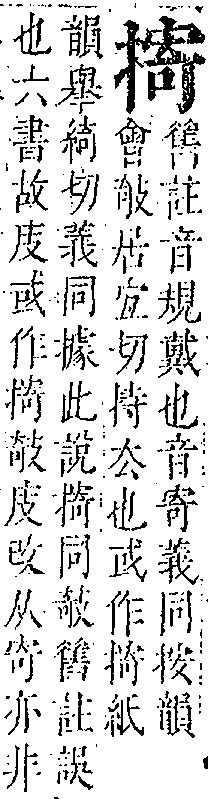 舊註音規戴也音寄義同按韻
會攲居宜切持厺也或作掎紙
韻舉綺切義同據此說掎同攲舊註誤
也六書故庋或作掎攲庋改从寄亦非